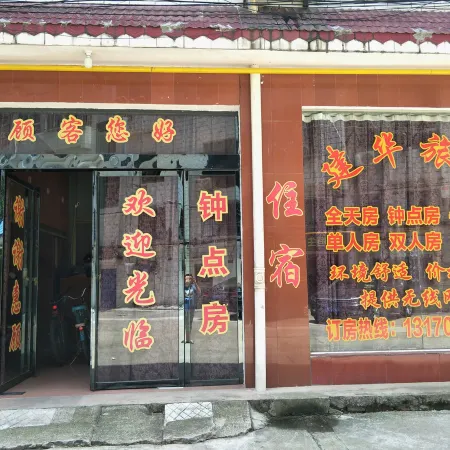 顾客您好
欢迎光临
钟点房
住宿
达华旅
全天房 钟点房
单人房 双人房
环境舒适 价
提供无线网
订房热线：13170